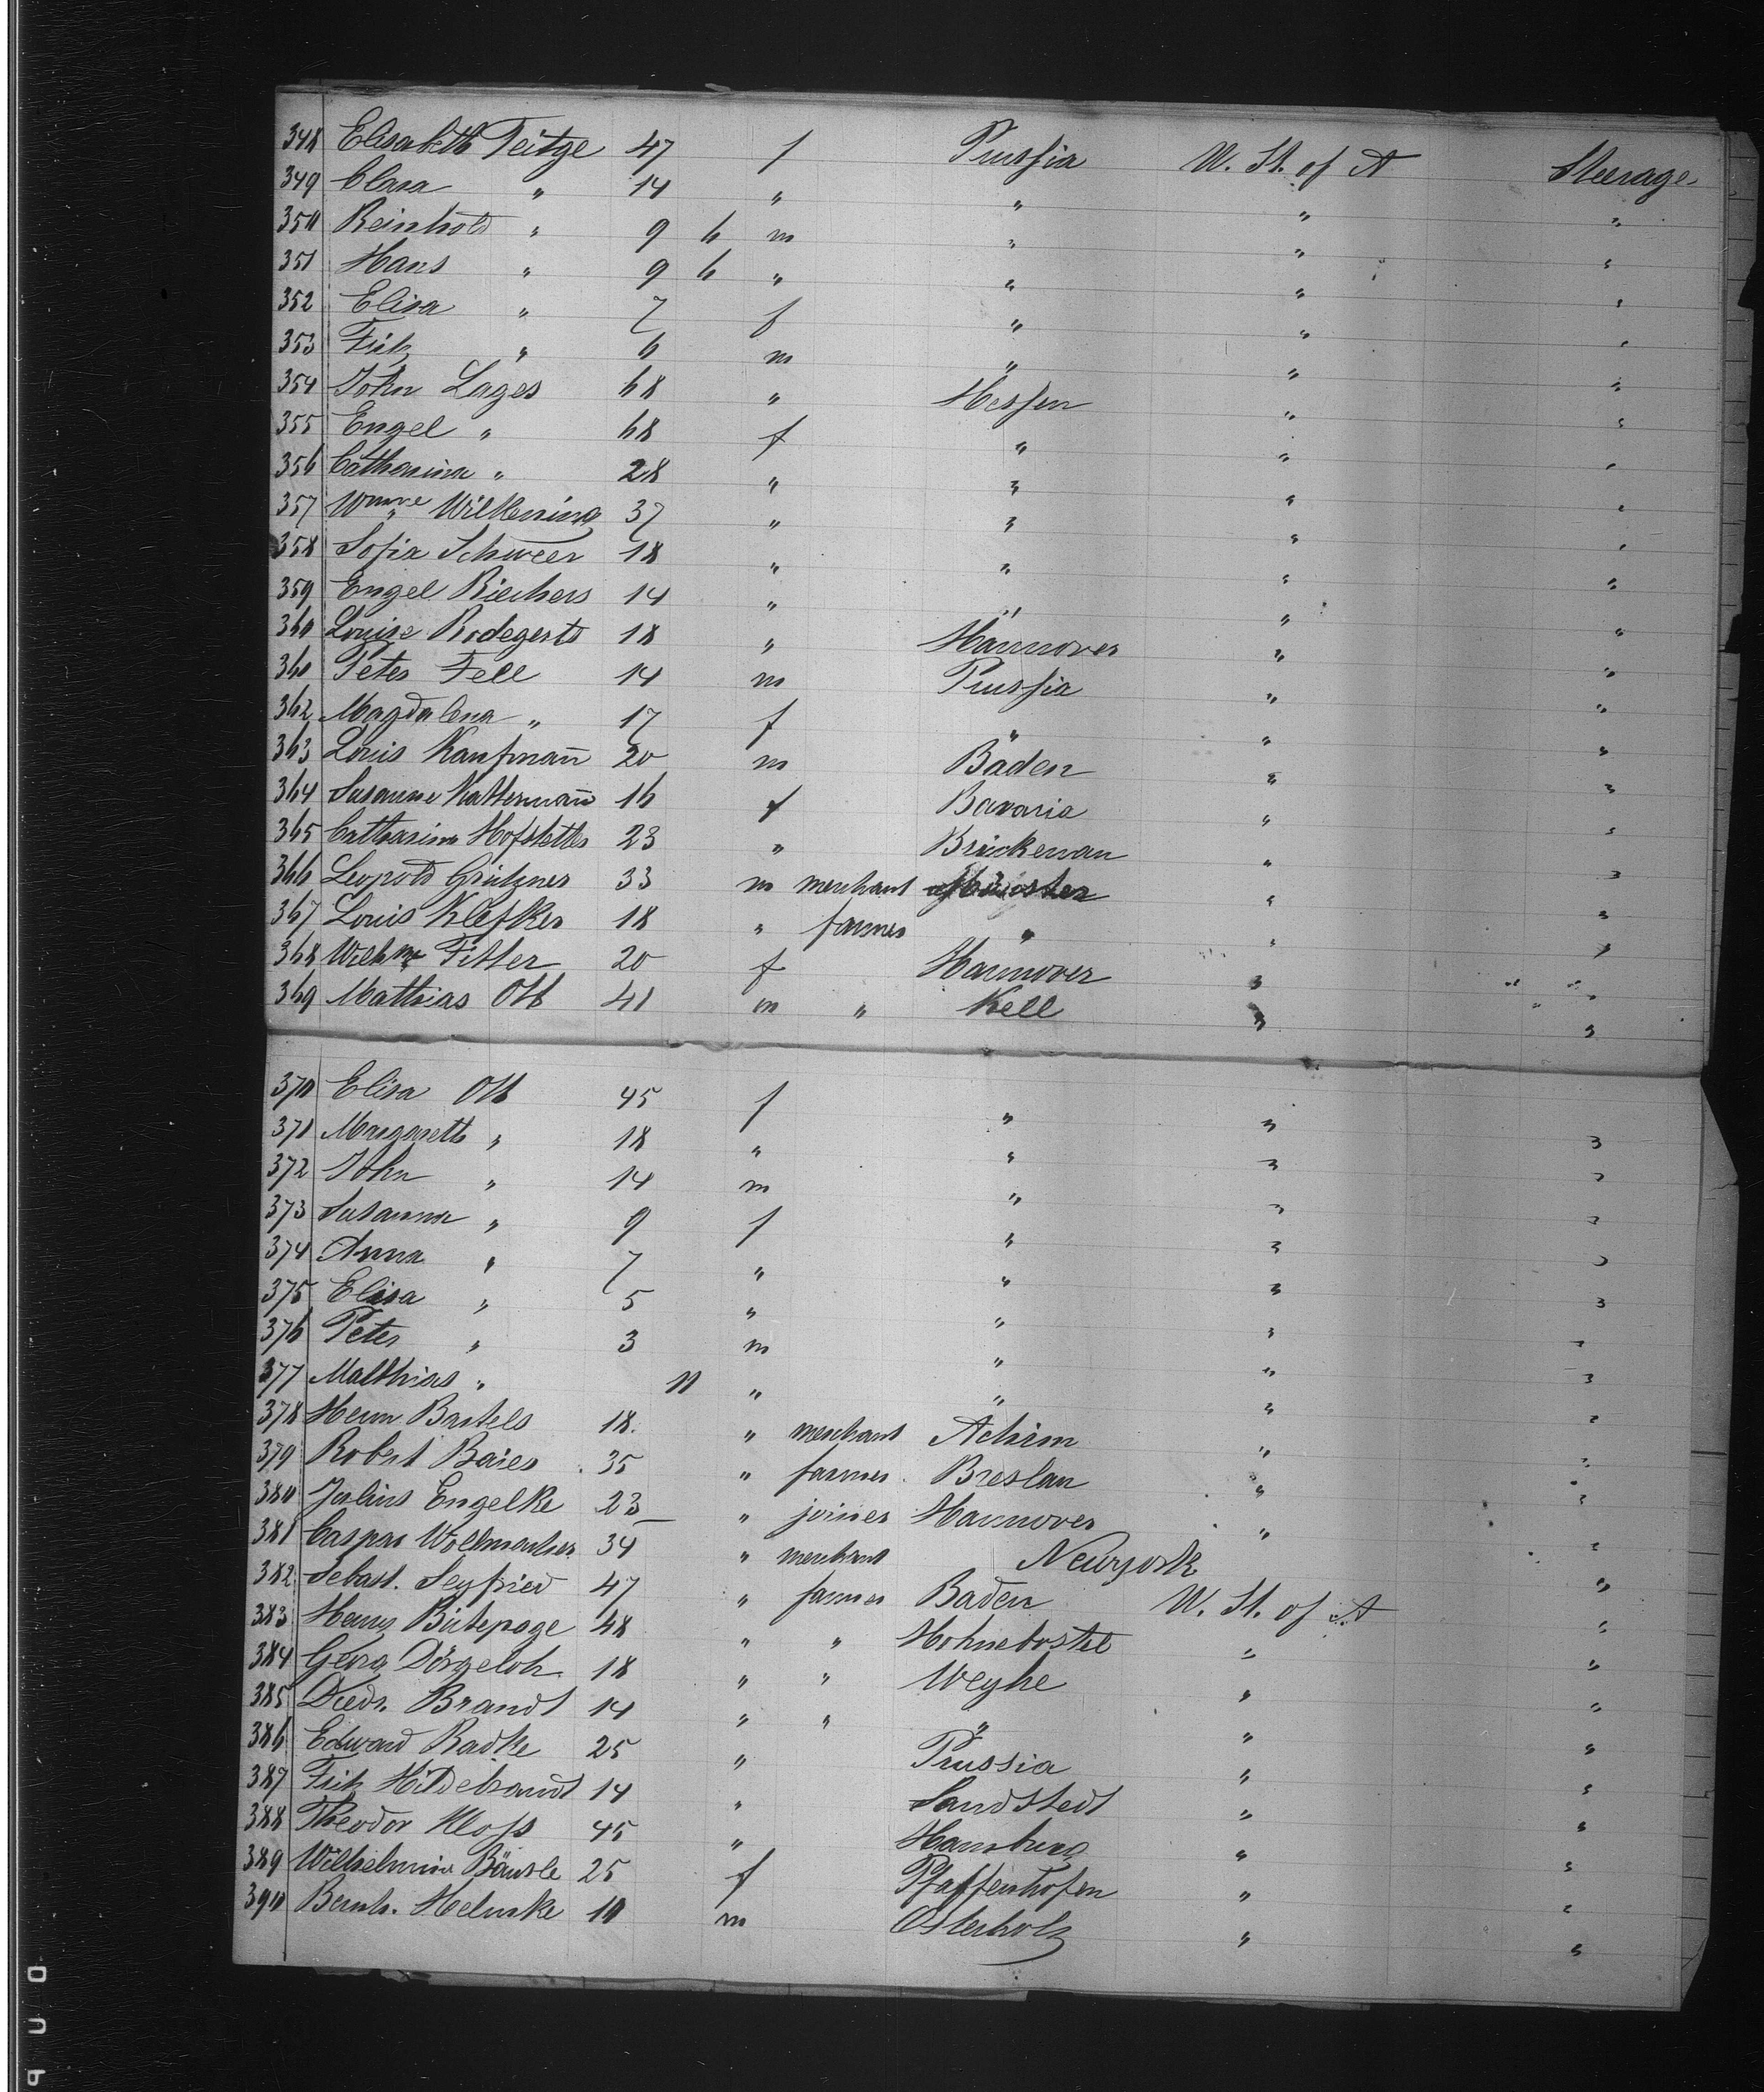 348 Elisabeth Teitge 47 f Prussia U. St. of A Steerage
349 Clara " 14 " " " "
350 Reinhold " 9 6 m " " "
351 Hans " 9 6 " " " "
352 Elisa " 7 f " " "
353 Fritz " 6 m " " "
354 John Lages 68 " Hessen " "
355 Engel " 68 f " " "
356 Catharina " 28 " " " "
357 Wilkening 37 " " " "
358 Sofia Schweer 18 " " " "
359 Engel Riechers 14 " " " "
360 Louise Rodegerts 18 " Hannover " "
360 Peter Fell 14 m Prussia " "
362 Magdalena " 17 f " " "
363 Louis Kaufmañ 20 m Baden " "
364 Susanne Kattermañ 16 f Bavaria " "
365 Catharina Hofstetter 23 " Brückenau " "
366 Leopold Grützner 33 m merchant Münster " "
367 Louis Klefker 18 " farmer " " "
368 Wilhme Fitter 20 f Hannover " "
369 Mathias Ott 41 m " Kell " "
370 Elisa Ott 45 f " " "
371 Margareth " 18 " " " "
372 John " 14 m " " "
373 Susanna " 9 f " " "
374 Anna " 7 " " " "
375 Elisa " 5 " " " "
376 Peter " 3 m " " "
377 Matthias " 11 " " " "
378 Herm. Bartels 18. " merchant Achim " "
379 Robert Baier 35 " farmer Breslau " "
380 Julius Engelke 23 " joiner Hannover " "
381 Caspar Wollmacher 34 " merchant Newyork "
382 Sebast. Seyfried 47 " farmer Baden U. St. of A "
383 Henry Bütepage 48 " " Hohnebostel " "
384 Georg Dörgeloh 18 " " Weyhe " "
385 Diedr. Brandt 14 " " " " "
386 Edward Radke 25 " Prussia " "
387 Fritz Hildebrandt 14 " Sandstedt " "
388 Theodor Kloss 45 " Hamburg " "
389 Wilhelmine Bäusle 25 f Pfaffenhofen " "
390 Bernh. Helmke 10 m Osterholz " "